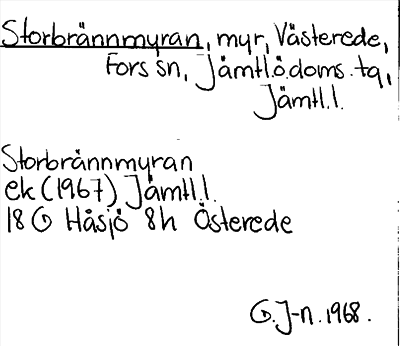 Storbrännmyran, myr, Västerede,
Fors sn, Jämtl.ö.doms.tq,
Jämtl.l.
Storbrännmyran
ek (1967) Jämtl.l.
18 G Håsjö 8h Österede
G.J-n. 1968.